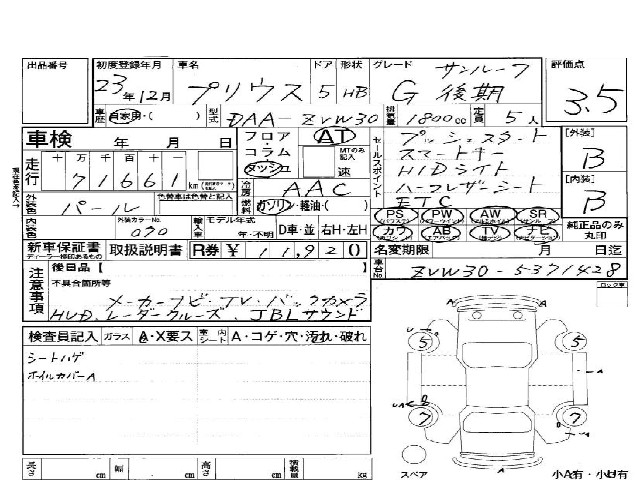 出品番号 初度登録年月 車名 ドア 形状 グレード サンルーフ 評価点
23年12月 プリウス 5 HB G 後期 3.5
車歴 自家用・( ) 型式 DAA-ZVW30 排気量 1800cc 定員 5人
車検 年 月 日
フロア・コラム・ダッシュ AT MTのみ記入 速
走行 十 万 千 百 十 一
71661 km
セールスポイント
プッシュスタート
スマートキー
HIDライト
ハーフレザーシート
ETC
[外装] B
[内装] B
外装色 パール 色替車は色替と記入
冷房 AAC
燃料 ガソリン・軽油・( )
PS PW AW SR
カワ AB TV ナビ
純正品のみ丸印
内装色 外装カラーNo. 070 輸入車 モデル年式 年・不明 D車・並 右H・左H
新車保証書 取扱説明書 R券 ¥ 11,920
ディーラー捺印あるもの
名変期限 月 日迄
車台No ZVW30-5371428
注意事項 後日品【 】
不具合箇所等
メーカーナビ・TV・バックカメラ
HUD、レーダークルーズ、JBLサウンド
検査員記入 ガラス A・X要ス 室内シート A・コゲ・穴・汚れ・破れ
シートハゲ
ホイルカバーA
5 5
A
7 7
スペア
小A有・小U有
長さ cm 幅 cm 高さ cm 積載量 kg